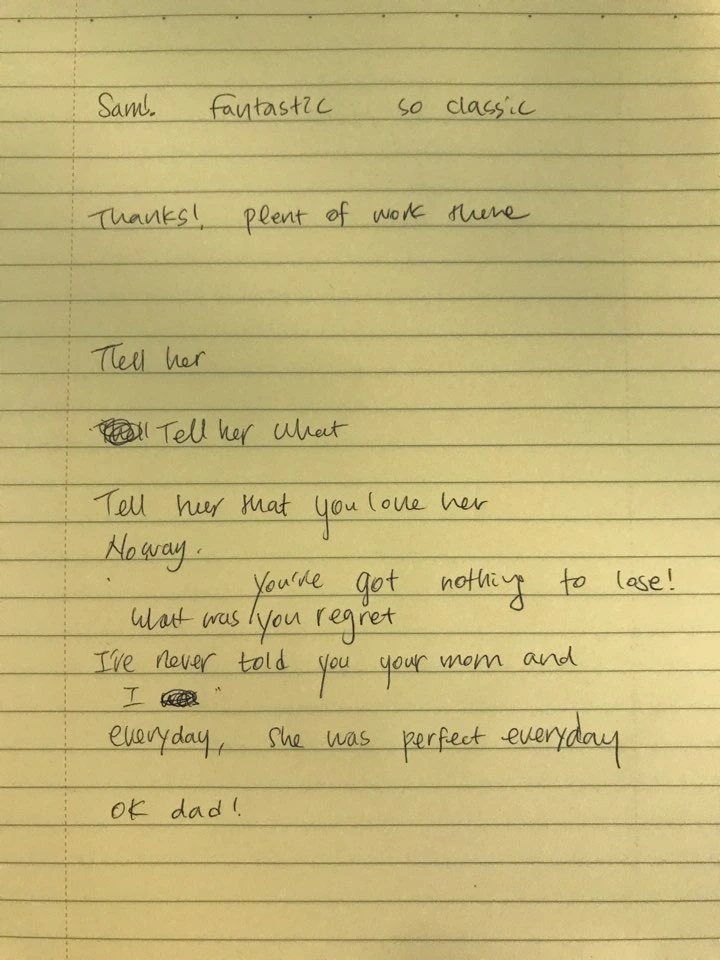 Sam!. fantastic so classic
Thanks!, plent of work there
Tell her
Tell her what
Tell her that you love her
No way.
you've got nothing to lose!
What was you regret
I've never told you your mom and
I "
everyday, she was perfect everyday
OK dad!